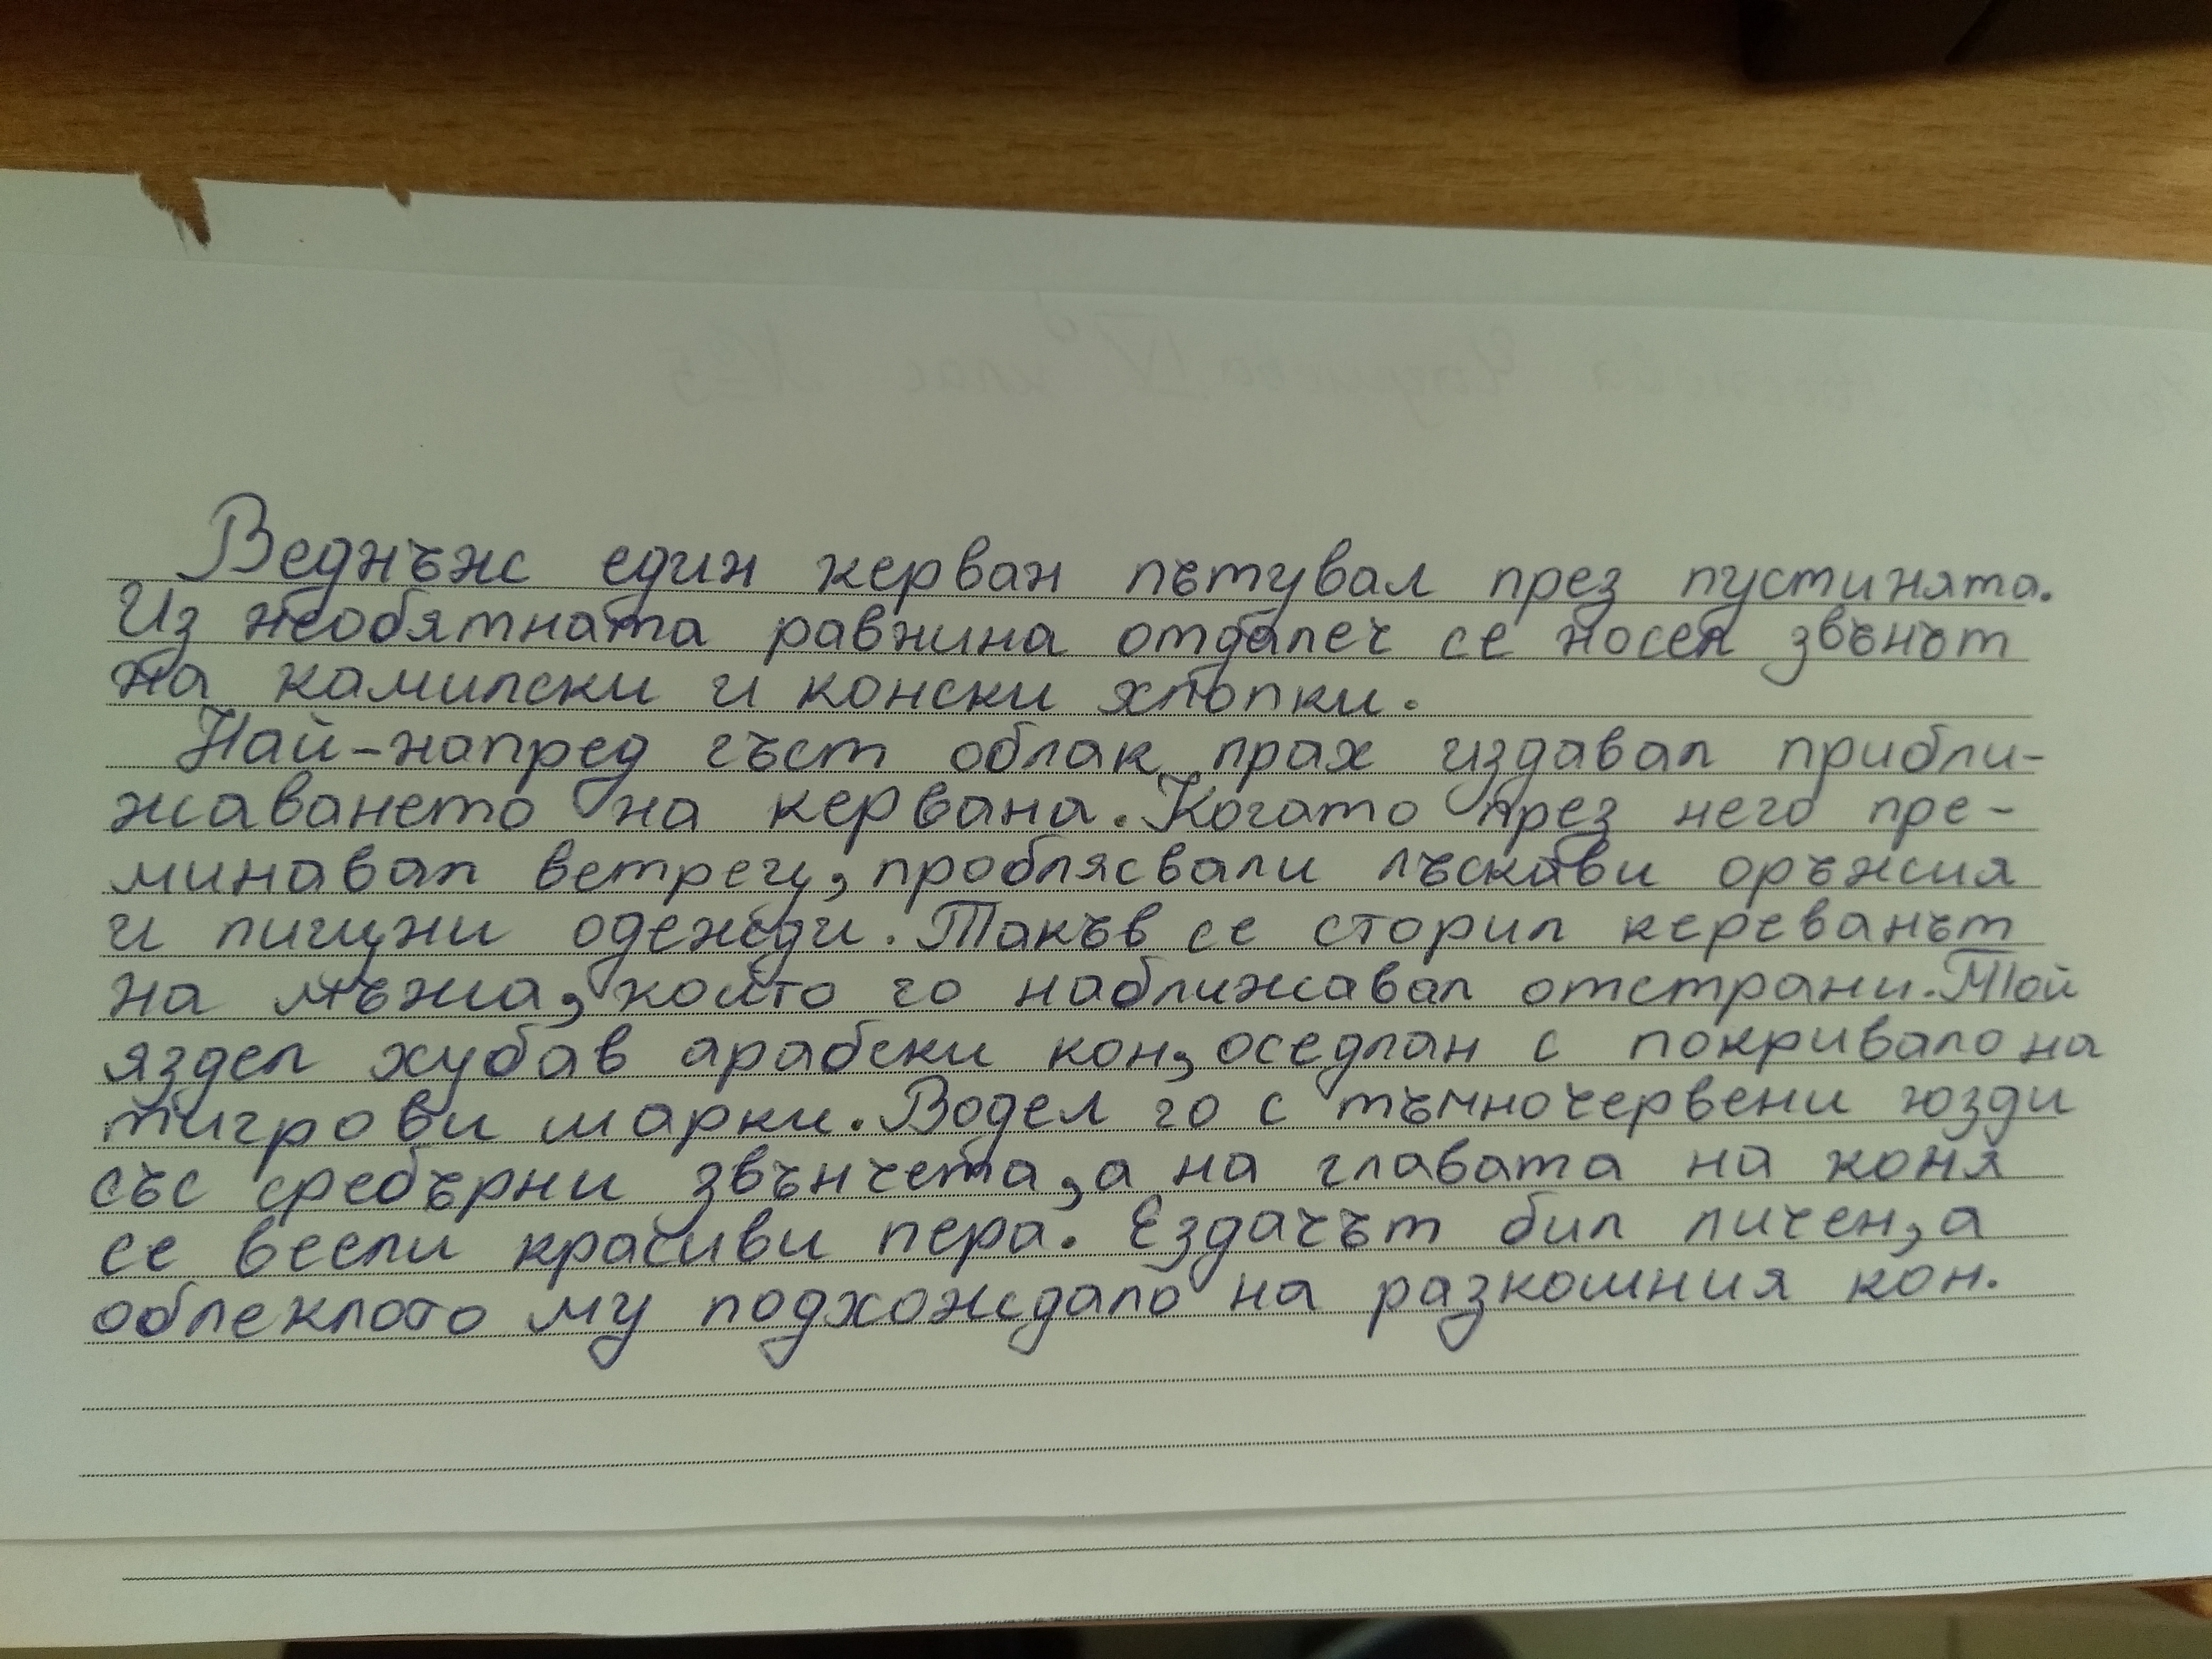 Веднъж един керван пътувал през пустинята.
Из необятната равнина отдалеч се носел звънът
на камилски и конски хлопки.
Най-напред гъст облак прах издавал прибли-
жаването на кервана. Когато през него пре-
минавал ветрец, проблясвали лъскави оръжия
и пищни одежди. Такъв се сторил кереванът
на мъжа, който го наближавал отстрани. Той
яздел хубав арабски кон, оседлан с покривало на
тигрови шарки. Водел го с тъмночервени юзди
със сребърни звънчета, а на главата на коня
се веели красиви пера. Ездачът бил личен, а
облеклото му подхождало на разкошния кон.